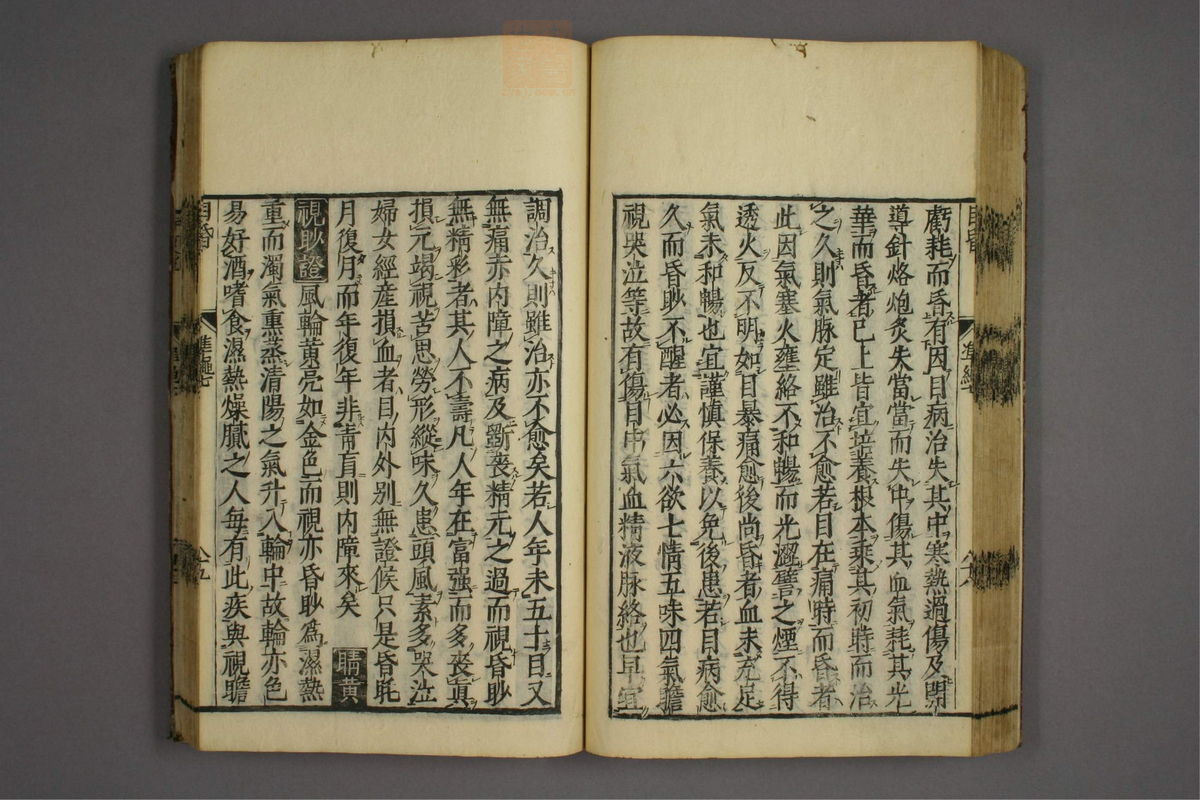 虧耗而昏有因目病治失其中寒熱過傷及開
導針烙炮灸失當當而失中傷其血氣耗其光
華而昏者已上皆宜培養根本乘其初時而治
之久則氣脉定雖治不愈若目在痛時而昏者
此因氣塞火壅絡不和暢而光澀譬之煙不得
透火反不明如目暴痛愈後尚昏者血未充足
氣未和暢也宜謹慎保養以免後患若目病愈
久而昏眇不醒者必因六欲七情五味四氣瞻
視哭泣等故有傷目中氣血精液脉絡也早宜
調治久則雖治亦不愈矣若人年未五十目又
無痛亦内障之病及斵喪精元之過而視昏眇
無精彩者其人不壽凡人年在富强而多喪真
損元竭視苦思勞形縱味久患頭風素多哭泣
婦女經産損血者目内外别無證候只是昏眊
月復月而年復年非青盲則内障來矣 睛黄
視眇證 風輪黄亮如金色而視亦昏眇爲濕熱
重而濁氣熏蒸清陽之氣升入輪中故輪亦色
易好酒嗜食濕熱燥膩之人每有此疾與視瞻